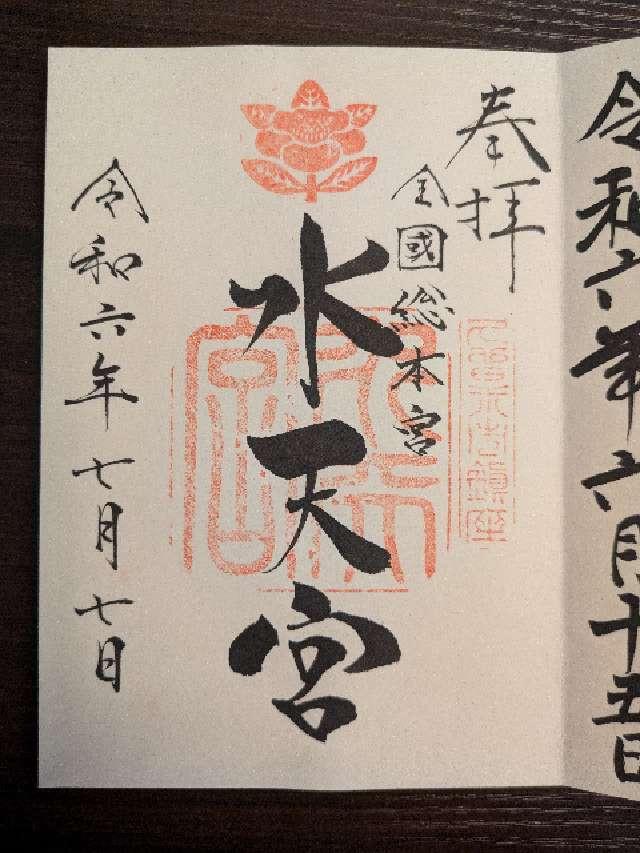 令和六年六月十五日
奉拝
全國総本宮
水天宮
令和六年七月七日